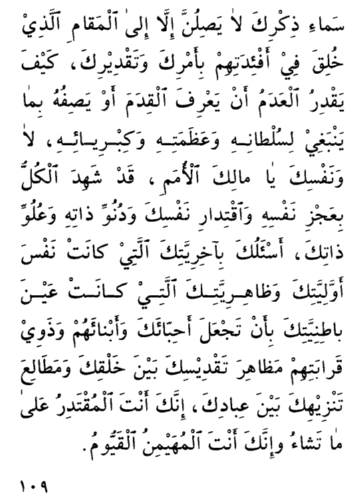 سَماءِ ذِكْرِكَ لاٰ يَصِلُنَّ إِلَّا إِلىٰ ٱلْمَقامِ ٱلَّذِيْ
خُلِقَ فِيْ أَفْئِدَتِهِمْ بِأَمْرِكَ وَتَقْدِيْرِكَ، كَيْفَ
يَقْدِرُ ٱلْعَدَمُ أَنْ يَعْرِفَ ٱلْقِدَمَ أَوْ يَصِفُهُ بِمٰا
يَنْبَغِيْ لِسُلْطانِـهِ وَعَظَمَتِـهِ وَكِبْرِيـائِـهِ، لاٰ
وَنَفْسِكَ يٰا مالِكَ ٱلْأُمَمِ، قَدْ شَهِدَ ٱلْكُلُّ
بِعَجْزِ نَفْسِهِ وَٱقْتِدارِ نَفْسِكَ وَدُنُوِّ ذاتِهِ وَعُلُوِّ
ذاتِكَ، أَسْئَلُكَ بِآخِرِيَّتِكَ ٱلَّتِيْ كانَتْ نَفْسَ
أَوَّلِيَّتِكَ وَظاهِـرِيَّتِـكَ ٱلَّتِـيْ كـانَـتْ عَيْـنَ
باطِنِيَّتِكَ بِأَنْ تَجْعَلَ أَحِبّائَكَ وَأَبْنائَهُمْ وَذَوِيْ
قَرابَتِهِمْ مَظاهِرَ تَقْدِيْسِكَ بَيْنَ خَلْقِكَ وَمَطالِعَ
تَنْزِيْهِكَ بَيْنَ عِبادِكَ، إِنَّكَ أَنْتَ ٱلْمُقْتَدِرُ عَلىٰ
مٰا تَشاءُ وَإِنَّكَ أَنْتَ ٱلْمُهَيْمِنُ ٱلْقَيُّومُ.
١٠٩